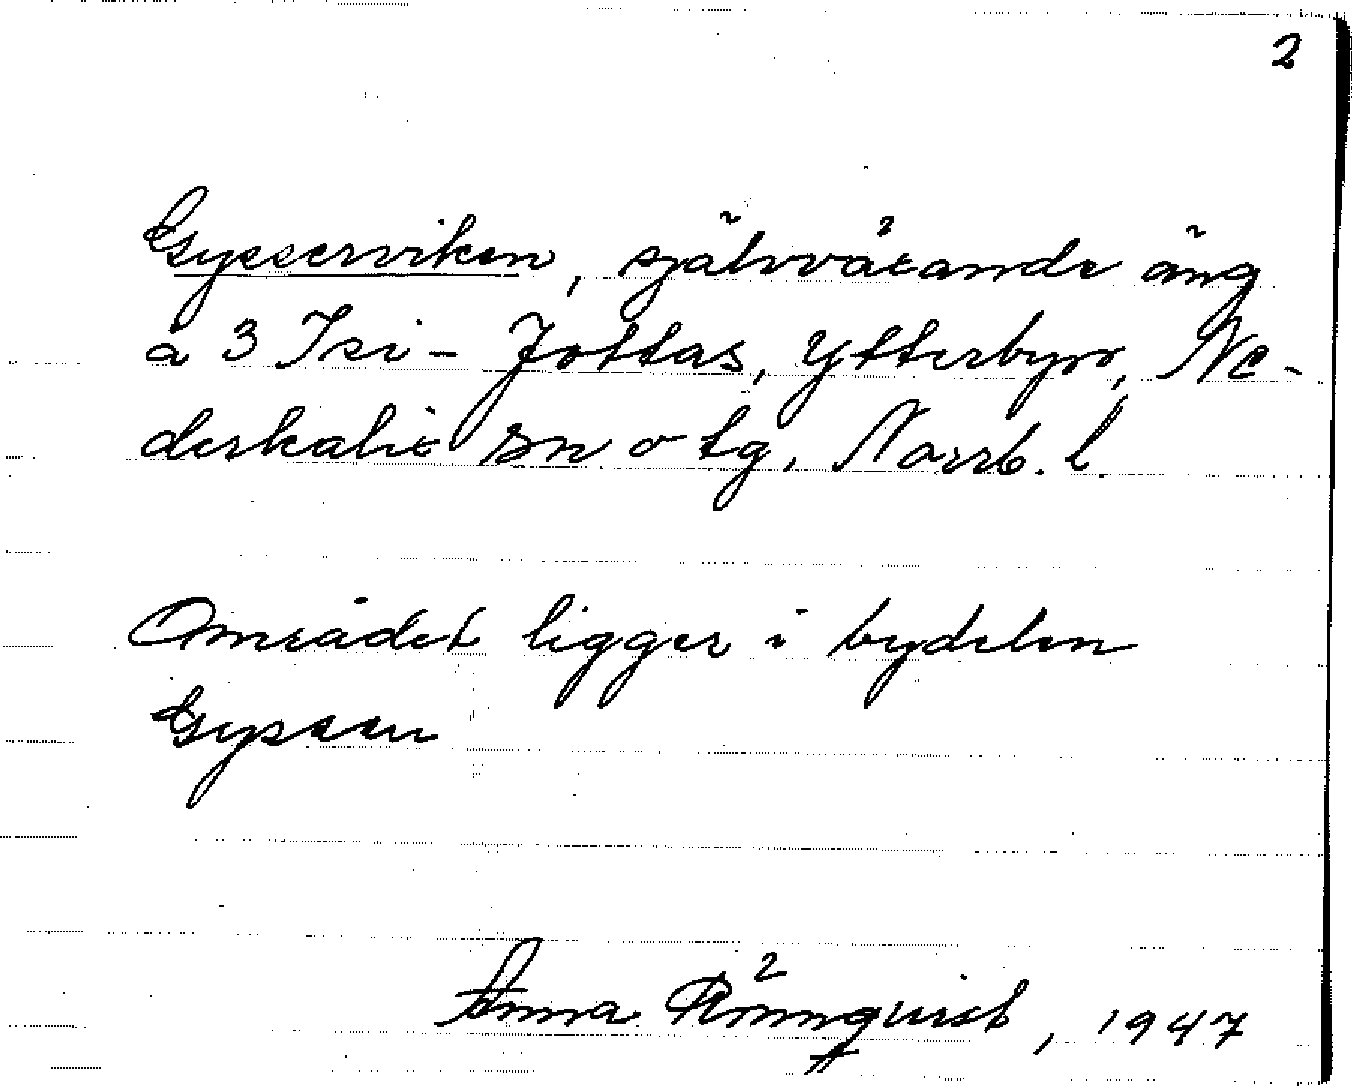 2
Gysserviken, självvätande äng
å 3 Isi- Jottas, Ytterbyn, Ne-
derkalix sn o tg, Norrb. l.
Området ligger i bydelen
Gyssen
Anna Rönnqvist, 1947